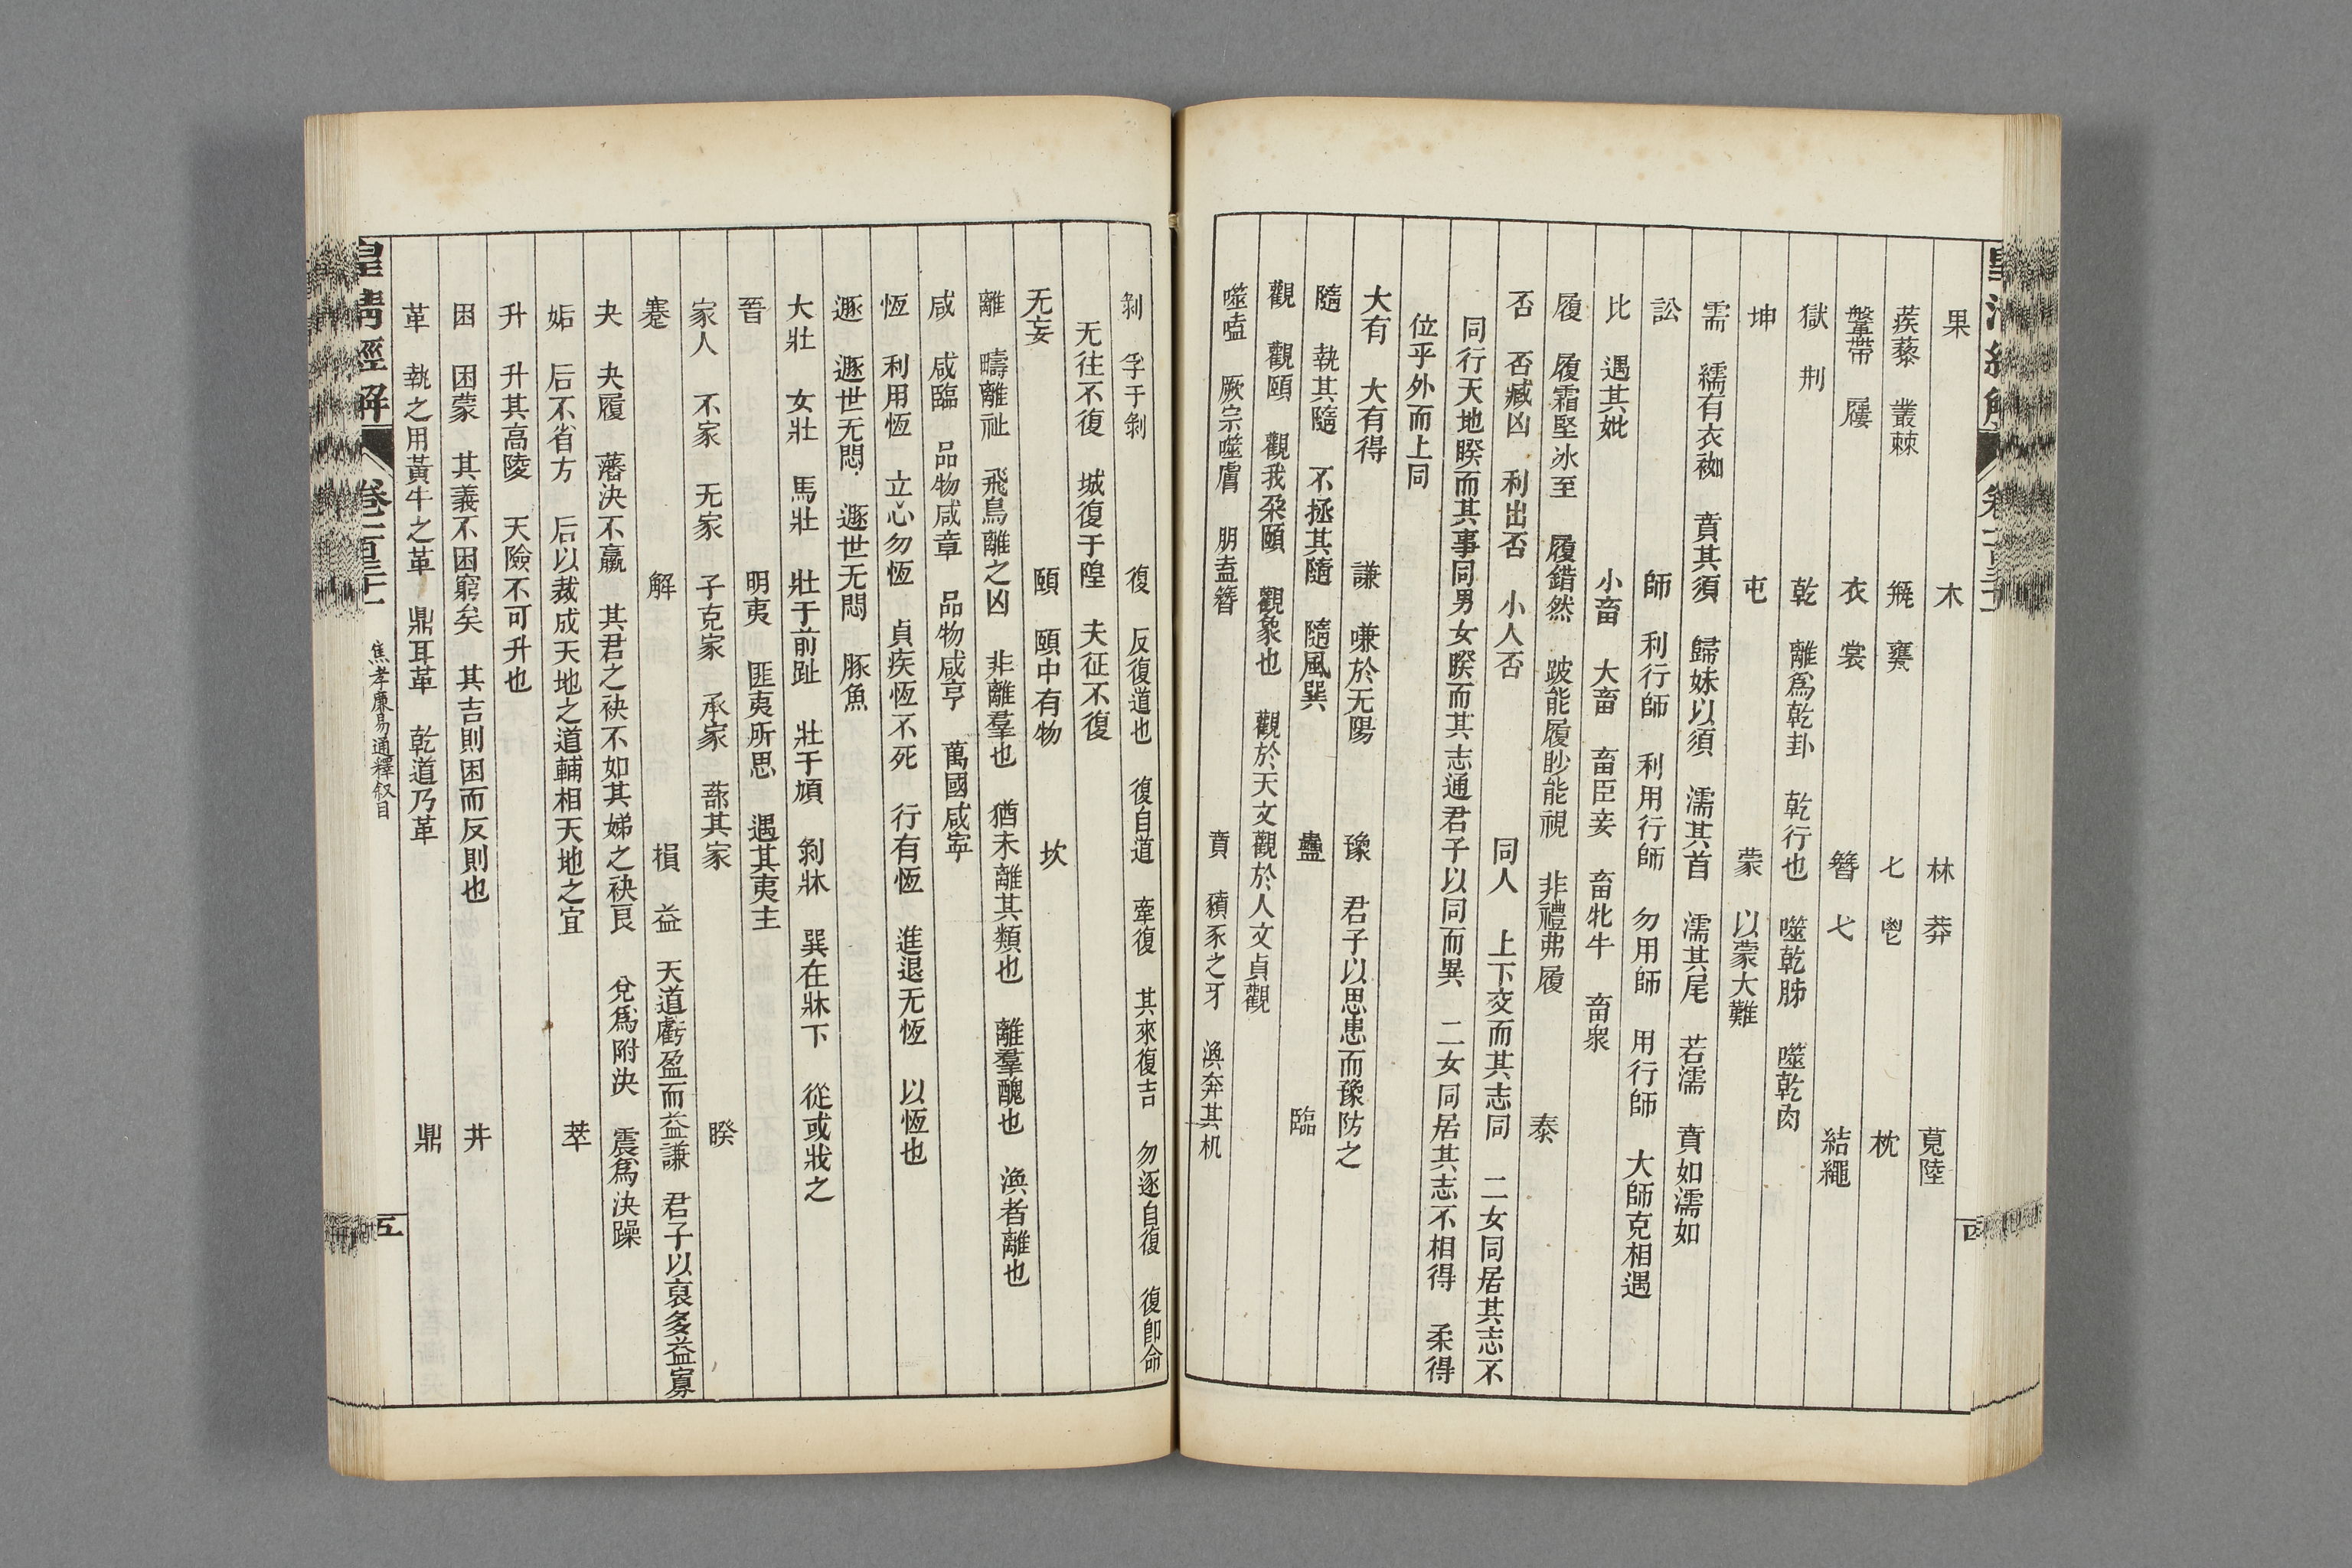 果　木　林　莽　莧陸
蒺藜　叢棘　甁　甕　匕　鬯　枕
鞶帶　屨　衣　裳　簪　弋　結繩
獄　刑　乾　離爲乾卦　乾行也　噬乾胏　噬乾肉
坤　屯　蒙　以蒙大難
需　繻有衣袽　賁其須　歸妹以須　濡其首　濡其尾　若濡　賁如濡如
訟　師　利行師　利用行師　勿用師　用行師　大師克相遇
比　遇其妣　小畜　大畜　畜臣妾　畜牝牛　畜衆
履　履霜堅冰至　履錯然　跛能履眇能視　非禮弗履　泰
否　否臧凶　利出否　小人否　同人　上下交而其志同　二女同居其志不
同行天地睽而其事同男女睽而其志通君子以同而異　二女同居其志不相得　柔得
位乎外而上同
大有　大有得　謙　嗛於无陽　豫　君子以思患而豫防之
隨　執其隨　不拯其隨　隨風巽　蠱　臨
觀　觀頤　觀我朶頤　觀象也　觀於天文觀於人文貞觀
噬嗑　厥宗噬膚　朋盍簪　賁　豶豕之牙　渙奔其机
皇淸經解
剝　孚于剝　復　反復道也　復自道　牽復　其來復吉　勿逐自復　復卽命
无往不復　城復于隍　夫征不復
无妄　頤　頤中有物　坎
離　疇離祉　飛鳥離之凶　非離羣也　猶未離其類也　離羣醜也　渙者離也
咸　咸臨　品物咸章　品物咸亨　萬國咸寧
恆　利用恆　立心勿恆　貞疾恆不死　行有恆　進退无恆　以恆也
遯　遯世无悶　遯世无悶　豚魚
大壯　女壯　馬壯　壯于前趾　壯于頄　剝牀　巽在牀下　從或戕之
晉　明夷　匪夷所思　遇其夷主
家人　不家　无家　子克家　承家　蔀其家　睽
蹇　解　損　益　天道虧盈而益謙　君子以裒多益寡
夬　夬履　藩決不羸　其君之袂不如其娣之袂良　兌爲附決　震爲決躁
姤　后不省方　后以裁成天地之道輔相天地之宜　萃
升　升其高陵　天險不可升也
困　困蒙　其義不困窮矣　其吉則困而反則也　井
革　執之用黃牛之革　鼎耳革　乾道乃革　鼎
皇淸經解　卷一百二十一　焦孝廉易通釋叙目　五